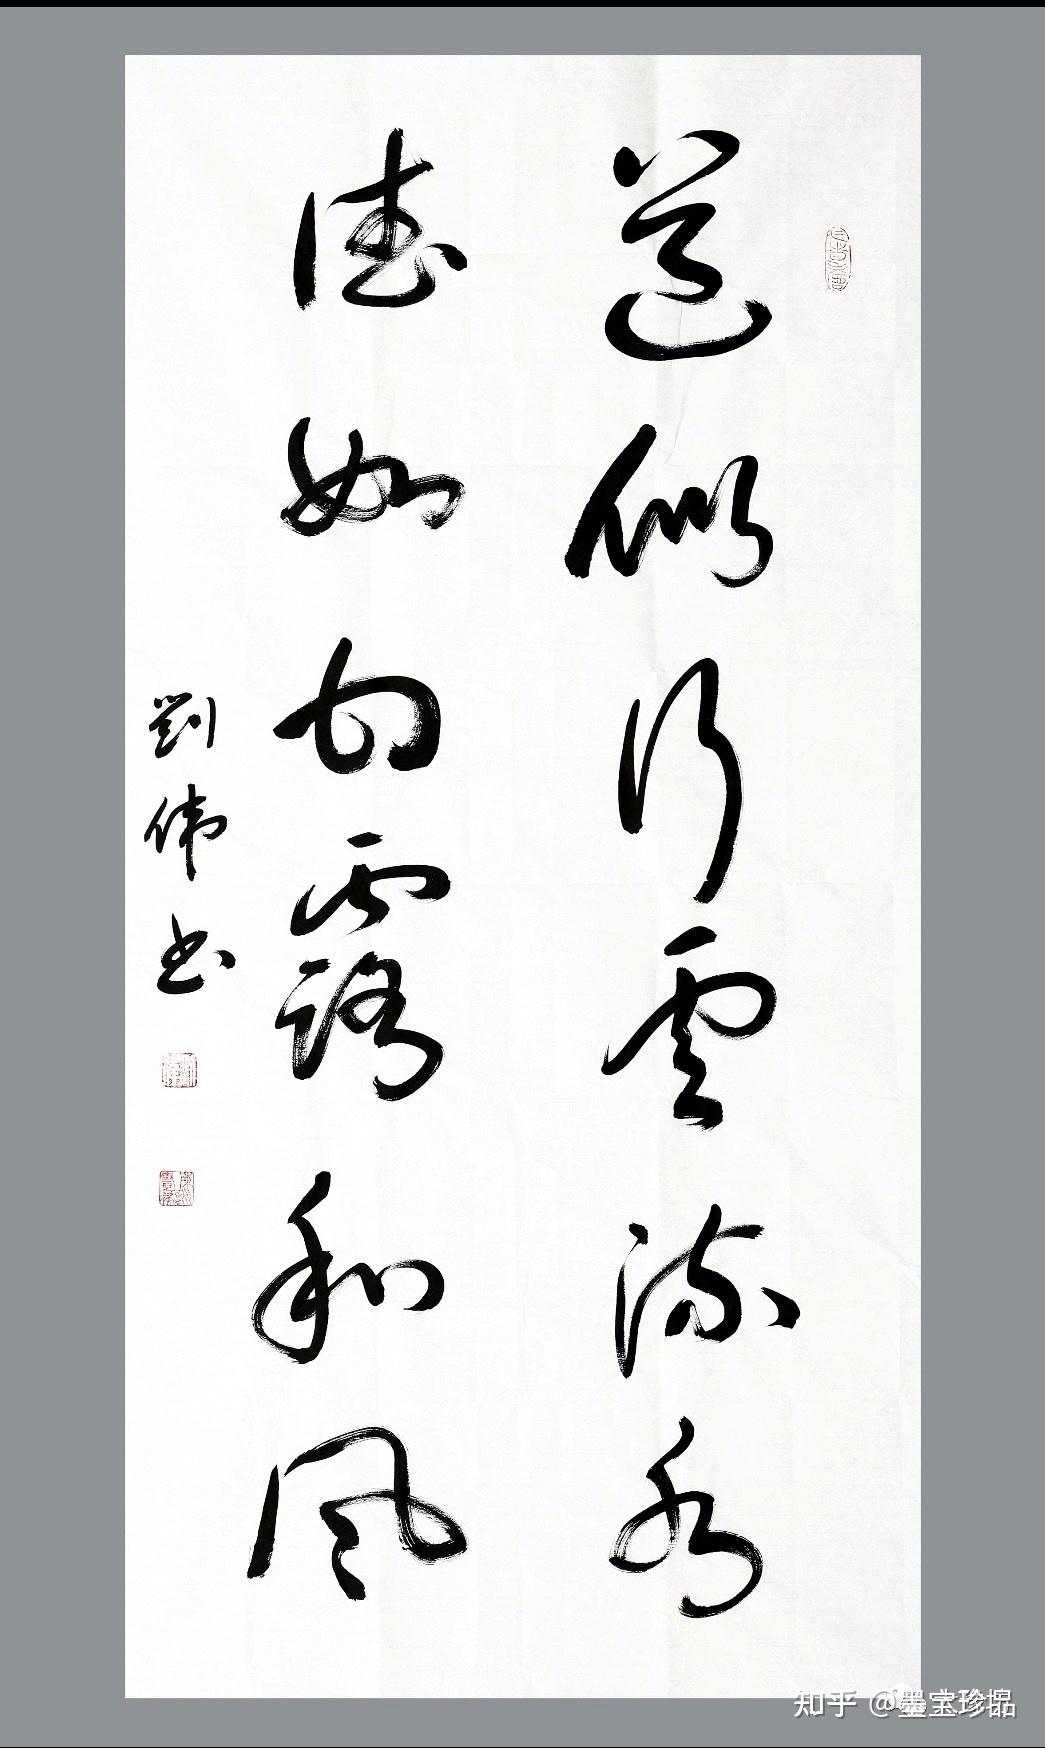 道似行雲流水
德如甘露和風
劉偉书
知乎 @墨宝珍品